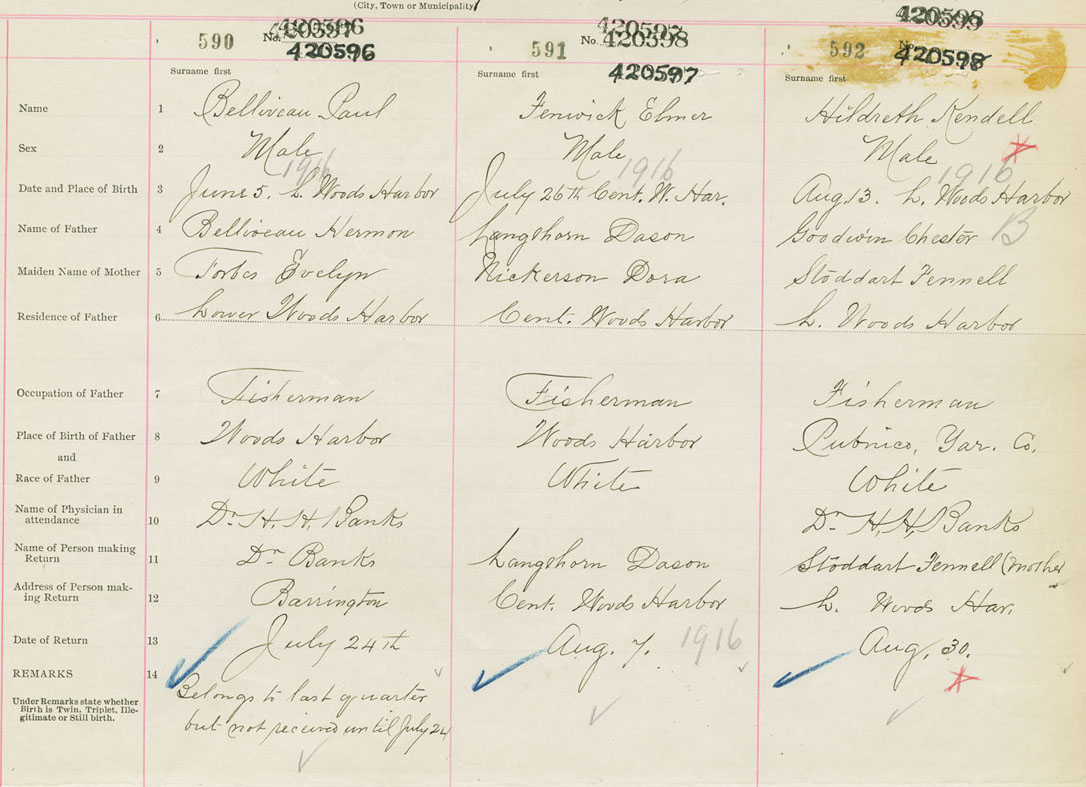 (City, Town or Municipality)
590 No. 420596
591 No. 420597
592 No. 420598
Surname first Surname first Surname first
Name 1 Belliveau Paul Fenwick Elmer Hildreth Kendell
Sex 2 Male Male Male
1916 1916 1916
Date and Place of Birth 3 June 5. L. Woods Harbor July 26th Cent. W. Har. Aug. 13. L. Woods Harbor
Name of Father 4 Belliveau Hermon Langthorn Dason Goodwin Chester B
Maiden Name of Mother 5 Forbes Evelyn Nickerson Dora Stoddart Fennell
Residence of Father 6 Lower Woods Harbor Cent. Woods Harbor L. Woods Harbor
Occupation of Father 7 Fisherman Fisherman Fisherman
Place of Birth of Father 8 Woods Harbor Woods Harbor Pubnico, Yar. Co.
and
Race of Father 9 White White White
Name of Physician in
attendance 10 Dr. H. H. Banks Dr. H. H. Banks
Name of Person making
Return 11 Dr. Banks Langthorn Dason Stoddart Fennell (mother
Address of Person mak-
ing Return 12 Barrington Cent. Woods Harbor L. Woods Har.
Date of Return 13 July 24th Aug. 7. 1916 Aug. 30.
REMARKS 14
Under Remarks state whether
Birth is Twin, Triplet, Ille-
gitimate or Still birth.
Belongs to last quarter
but not received until July 24